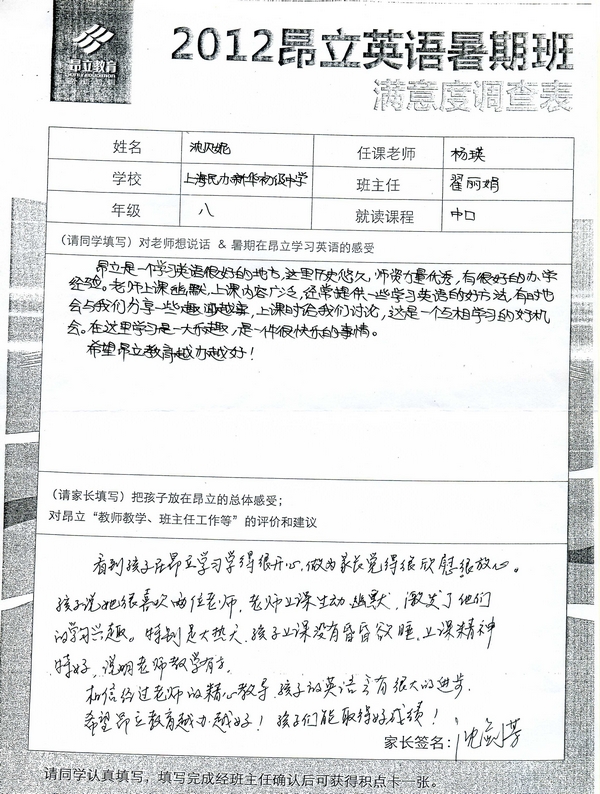 昂立教育
2012昂立英语暑期班
满意度调查表
姓名 沈贝妮 任课老师 杨瑛
学校 上海民办新华初级中学 班主任 翟丽娟
年级 八 就读课程 中口
(请同学填写)对老师想说话 & 暑期在昂立学习英语的感受
昂立是一个学习英语很好的地方,这里历史悠久,师资力量优秀,有很好的办学
经验。老师上课幽默,上课内容广泛,经常提供一些学习英语的好方法,有时也
会与我们分享一些小趣闻趣事,上课时给我们讨论,这是一个互相学习的好机
会。在这里学习是一大乐趣,是一件很快乐的事情。
希望昂立教育越办越好!
(请家长填写)把孩子放在昂立的总体感受;
对昂立“教师教学、班主任工作等”的评价和建议
看到孩子在昂立学习学得很开心,做为家长觉得很欣慰很放心。
孩子说她很喜欢两位老师,老师上课生动幽默,激发了他们
的学习兴趣。特别是大热天,孩子上课没有昏昏欲睡,上课精神
特好,说明老师教学有方。
相信经过老师的精心教导,孩子的英语会有很大的进步。
希望昂立教育越办越好!孩子们能取得好成绩!
家长签名:沈剑芳
请同学认真填写,填写完成经班主任确认后可获得积点卡一张。